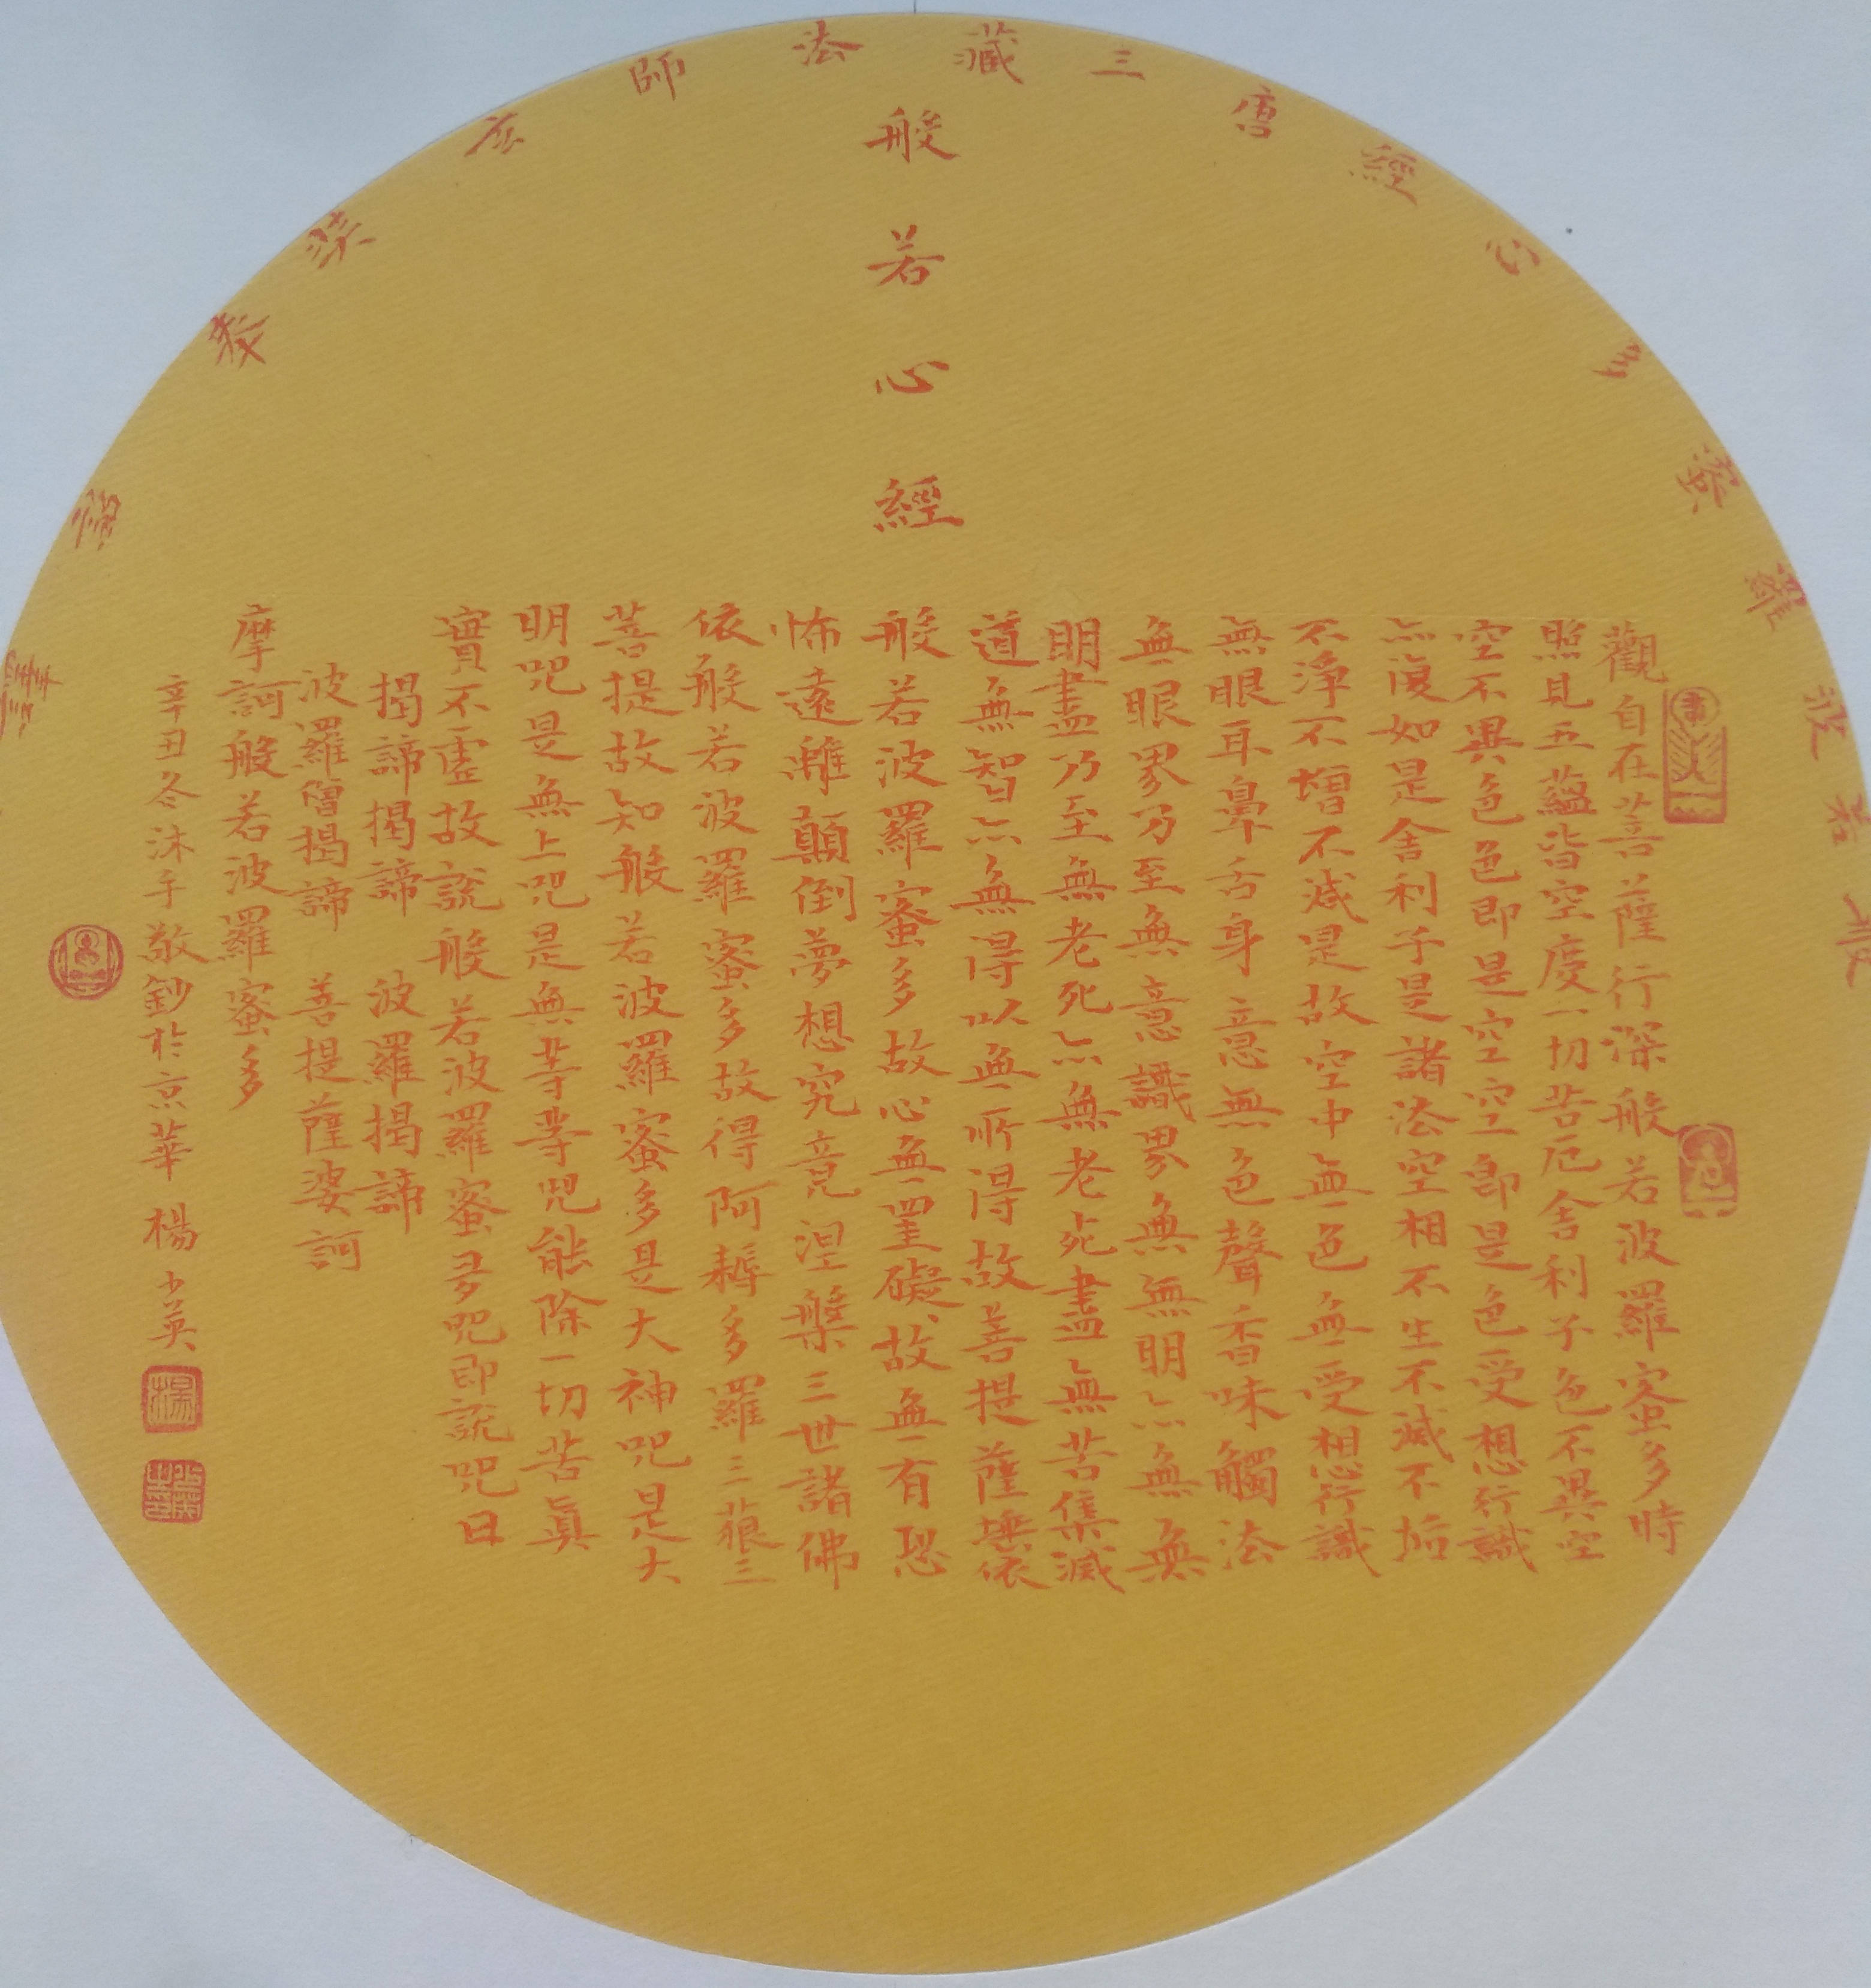 般若波羅蜜多心經唐三藏法師玄奘奉詔譯
般若心經
觀自在菩薩行深般若波羅蜜多時
照見五蘊皆空度一切苦厄舍利子色不異空
空不異色色即是空空即是色受想行識
亦復如是舍利子是諸法空相不生不滅不垢
不淨不增不減是故空中無色無受想行識
無眼耳鼻舌身意無色聲香味觸法
無眼界乃至無意識界無無明亦無無
明盡乃至無老死亦無老死盡無苦集滅
道無智亦無得以無所得故菩提薩埵依
般若波羅蜜多故心無罣礙故無有恐
怖遠離顛倒夢想究竟涅槃三世諸佛
依般若波羅蜜多故得阿耨多羅三藐三
菩提故知般若波羅蜜多是大神咒是大
明咒是無上咒是無等等咒能除一切苦真
實不虛故說般若波羅蜜多咒即說咒曰
揭諦揭諦 波羅揭諦
波羅僧揭諦 菩提薩婆訶
摩訶般若波羅蜜多
辛丑冬沐手敬鈔於京華 楊少英
楊